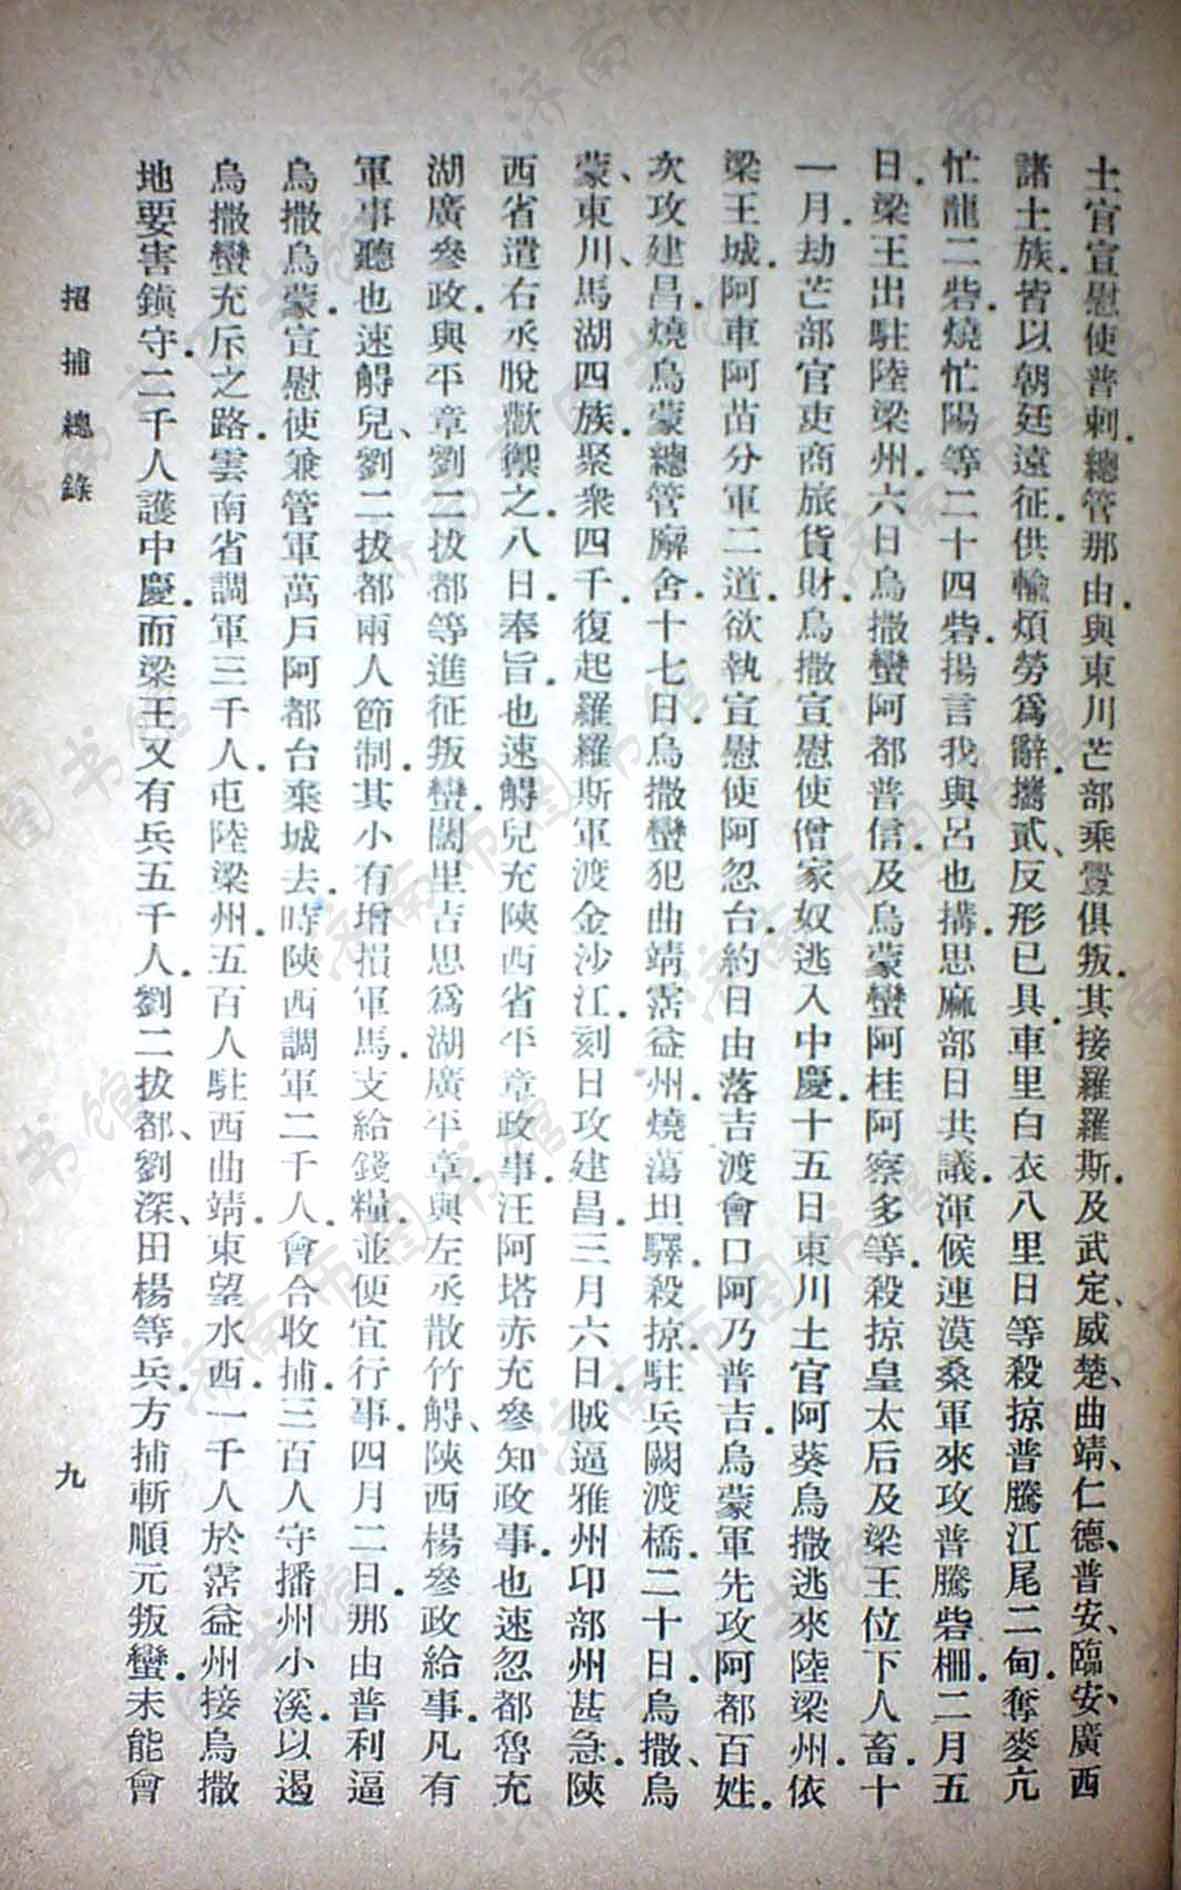 土官宣慰使普剌．總管那由．與東川芒部乘釁俱叛．其接羅羅斯．及武定、威楚、曲靖、仁德、普安、臨安、廣西
諸土族．皆以朝廷遠征．供輸煩勞爲辭．攜貳、反形已具．車里白衣八里日等殺掠普騰江尾二甸．奪麥亢
忙龍二砦．燒忙陽等二十四砦．揚言我與呂也搆．思麻部日共議．渾候連漠桑軍來攻普騰砦柵．二月五
日．梁王出駐陸梁州．六日烏撒蠻阿都普信．及烏蒙蠻阿桂阿察多等．殺掠皇太后及梁王位下人畜．十
一月．劫芒部官吏商旅貨財．烏撒宣慰使僧家奴逃入中慶．十五日東川土官阿葵烏撒逃來陸梁州．依
梁王城．阿車阿苗分軍二道．欲執宣慰使阿忽台．約日由落吉渡會口阿乃普吉．烏蒙軍先攻阿都百姓．
次攻建昌．燒烏蒙總管廨舍．十七日．烏撒蠻犯曲靖霑益州．燒蕩坦驛．殺掠．駐兵闕渡橋．二十日．烏撒、烏
蒙、東川、馬湖四族．聚衆四千．復起羅羅斯軍渡金沙江．刻日攻建昌．三月六日．賊逼雅州卭部州甚急．陝
西省遣右丞脫歡禦之．八日．奉旨．也速䚟兒充陝西省平章政事．汪阿塔赤充參知政事．也速忽都魯充
湖廣參政．與平章劉二拔都等進征叛蠻．闊里吉思爲湖廣平章．與左丞散竹䚟、陝西楊參政給事．凡有
軍事聽也速䚟兒、劉二拔都兩人節制．其小有增損軍馬．支給錢糧．並便宜行事．四月二日．那由普利逼
烏撒烏蒙．宣慰使兼管軍萬戶阿都台棄城去．時陝西調軍二千人．會合收捕．三百人守播州小溪．以遏
烏撒蠻充斥之路．雲南省調軍三千人．屯陸梁州．五百人駐西曲靖．東望水西．一千人於霑益州接烏撒
地要害鎮守．二千人護中慶．而梁王又有兵五千人．劉二拔都、劉深、田楊等兵．方捕斬順元叛蠻．未能會
招捕總錄
九